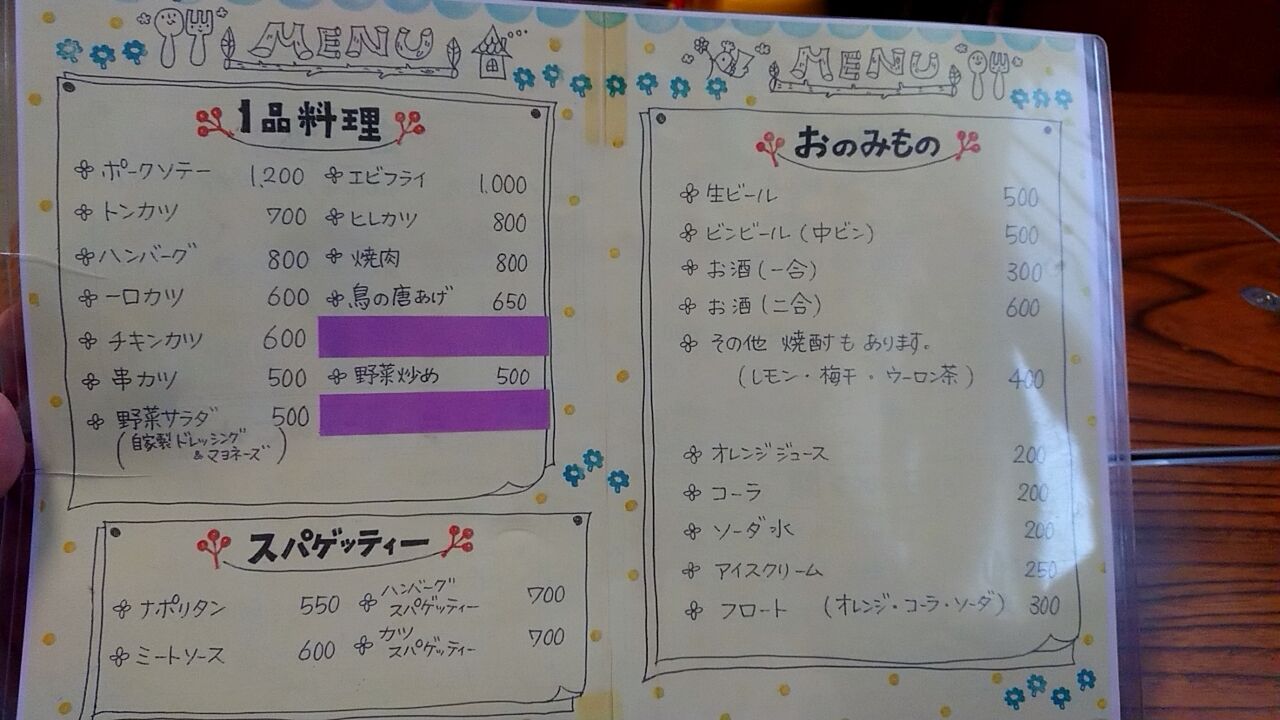 MENU
1品料理
ポークソテー 1,200
トンカツ 700
ハンバーグ 800
一口カツ 600
チキンカツ 600
串カツ 500
野菜サラダ 500
(自家製ドレッシング
&マヨネーズ)
エビフライ 1,000
ヒレカツ 800
焼肉 800
鳥の唐あげ 650
野菜炒め 500
スパゲッティー
ナポリタン 550
ミートソース 600
ハンバーグ
スパゲッティー 700
カツ
スパゲッティー 700
MENU
おのみもの
生ビール 500
ビンビール(中ビン) 500
お酒(一合) 300
お酒(二合) 600
その他 焼酎もあります。
(レモン・梅干・ウーロン茶) 400
オレンジジュース 200
コーラ 200
ソーダ水 200
アイスクリーム 250
フロート (オレンジ・コーラ・ソーダ) 300